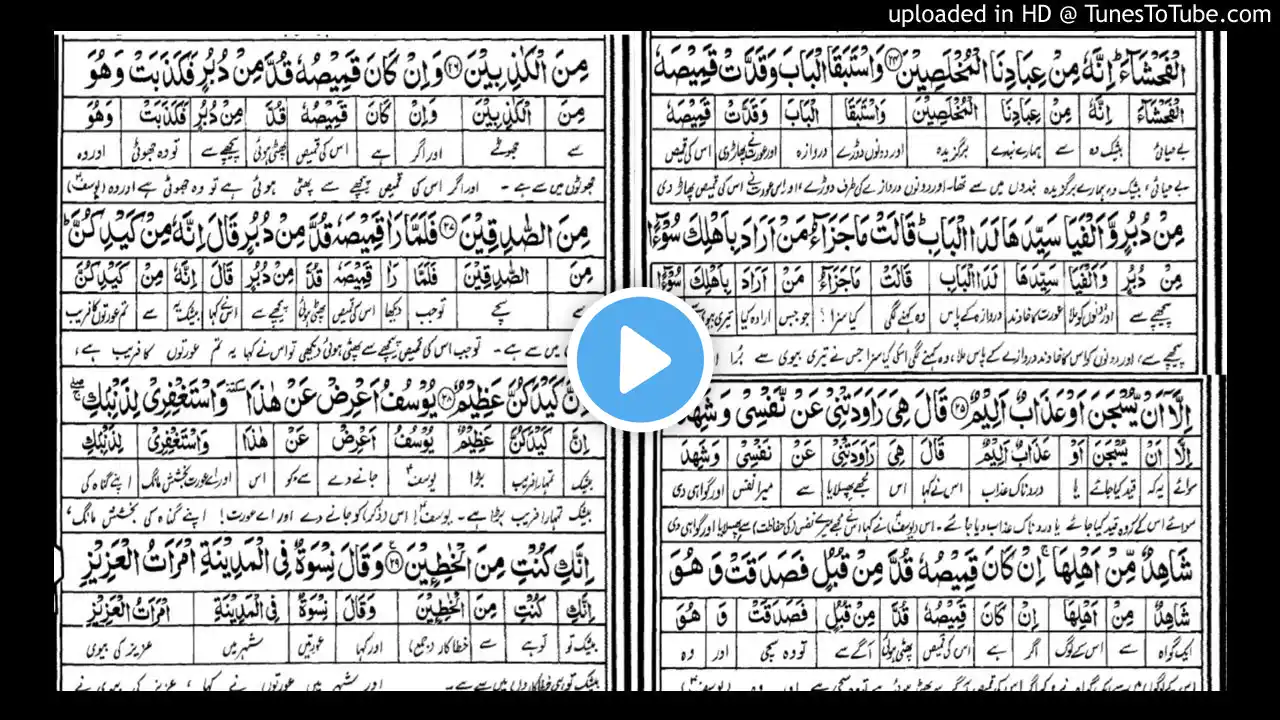 uploaded in HD @ TunesToTube.com
الْفَحْشَآءَ ؕ اِنَّهٗ مِنْ عِبَادِنَا الْمُخْلَصِيْنَ ۝۲۴ وَاسْتَبَقَا الْبَابَ وَقَدَّتْ قَمِيْصَهٗ
الْفَحْشَآءَ اِنَّهٗ مِنْ عِبَادِنَا الْمُخْلَصِيْنَ وَاسْتَبَقَا الْبَابَ وَقَدَّتْ قَمِيْصَهٗ
بے حیائی بیشک وہ سے ہمارے بندے برگزیدہ اور دونوں دوڑے دروازہ اور عورت نے پھاڑ دی اس کی قمیص
بے حیائی، بیشک وہ ہمارے برگزیدہ بندوں میں سے تھا۔ اور دونوں دروازے کی طرف دوڑے، اور اس عورت نے اس کی قمیص پھاڑ دی
مِنْ دُبُرٍ وَّ اَلْفَيَا سَيِّدَهَا لَدَا الْبَابِ ؕ قَالَتْ مَا جَزَآءُ مَنْ اَرَادَ بِاَهْلِكَ سُوْٓءًا
مِنْ دُبُرٍ وَّاَلْفَيَا سَيِّدَهَا لَدَا الْبَابِ قَالَتْ مَا جَزَآءُ مَنْ اَرَادَ بِاَهْلِكَ سُوْٓءًا
پیچھے سے اور دونوں کو ملا عورت کا خاوند دروازہ کے پاس وہ کہنے لگی کیا سزا؟ جو جس ارادہ کیا تیری
پیچھے سے، اور دونوں کو اس کا خاوند دروازے کے پاس ملا، وہ کہنے لگی اسکی کیا سزا جس نے تیری بیوی سے بُرا
اِلَّاۤ اَنْ يُّسْجَنَ اَوْ عَذَابٌ اَلِيْمٌ ۝۲۵ قَالَ هِيَ رَاوَدَتْنِيْ عَنْ نَّفْسِيْ وَ شَهِدَ
اِلَّا اَنْ يُّسْجَنَ اَوْ عَذَابٌ اَلِيْمٌ قَالَ هِيَ رَاوَدَتْنِيْ عَنْ نَّفْسِيْ وَ شَهِدَ
سوائے یہ کہ قید کیا جائے یا دردناک عذاب اس نے کہا اس مجھے پھسلایا سے میرا نفس اور گواہی دی
سوائے اس کے کہ وہ قید کیا جائے یا دردناک عذاب دیا جائے۔ اس (یوسفؑ) نے کہا اس نے مجھے میرے نفس (کی حفاظت) سے پھسلایا اور گواہی دی
شَاهِدٌ مِّنْ اَهْلِهَا ۚ اِنْ كَانَ قَمِيْصُهٗ قُدَّ مِنْ قُبُلٍ فَصَدَقَتْ وَ هُوَ
شَاهِدٌ مِنْ اَهْلِهَا اِنْ كَانَ قَمِيْصُهٗ قُدَّ مِنْ قُبُلٍ فَصَدَقَتْ وَ هُوَ
ایک گواہ سے اس کے لوگ اگر ہے اس کی قمیص پھٹی ہوئی آگے سے تو وہ سچی اور وہ
مِنَ الْكٰذِبِيْنَ ۝۲۶ وَ اِنْ كَانَ قَمِيْصُهٗ قُدَّ مِنْ دُبُرٍ فَكَذَبَتْ وَ هُوَ
مِنَ الْكٰذِبِيْنَ وَ اِنْ كَانَ قَمِيْصُهٗ قُدَّ مِنْ دُبُرٍ فَكَذَبَتْ وَهُوَ
سے جھوٹے اور اگر ہے اس کی قمیص پھٹی ہوئی پیچھے سے تو وہ جھوٹی اور وہ
جھوٹوں میں سے ہے۔ اور اگر اس کی قمیص پیچھے سے پھٹی ہوئی ہے تو وہ جھوٹی ہے اور وہ (یوسفؑ)
مِنَ الصّٰدِقِيْنَ ۝۲۷ فَلَمَّا رَاٰ قَمِيْصَهٗ قُدَّ مِنْ دُبُرٍ قَالَ اِنَّهٗ مِنْ كَيْدِكُنَّ ؕ
مِنَ الصّٰدِقِيْنَ فَلَمَّا رَاٰ قَمِيْصَهٗ قُدَّ مِنْ دُبُرٍ قَالَ اِنَّهٗ مِنْ كَيْدِكُنَّ
سے سچے تو جب دیکھا اس کی قمیص پھٹی ہوئی پیچھے سے اس نے کہا بیشک یہ سے تم عورتوں کا فریب
میں سے ہے۔ تو جب اس کی قمیص پیچھے سے پھٹی ہوئی دیکھی تو اس نے کہا یہ تم عورتوں کا فریب ہے،
اِنَّ كَيْدَكُنَّ عَظِيْمٌ ۝۲۸ يُوْسُفُ اَعْرِضْ عَنْ هٰذَا ٚ وَاسْتَغْفِرِيْ لِذَنْۢبِكِ ۚ
اِنَّ كَيْدَكُنَّ عَظِيْمٌ يُوْسُفُ اَعْرِضْ عَنْ هٰذَا وَاسْتَغْفِرِيْ لِذَنْۢبِكِ
بیشک تمہارا فریب بڑا یوسفؑ جانے دے سے۔کو اس اور اے عورت بخشش مانگ اپنے گناہ کی
بیشک تمہارا فریب بڑا ہے۔ یوسفؑ! اس (ذکر) کو جانے دے اور اے عورت! اپنے گناہ کی بخشش مانگ،
اِنَّكِ كُنْتِ مِنَ الْخٰطِـِٕيْنَ ۝۲۹ وَ قَالَ نِسْوَةٌ فِي الْمَدِيْنَةِ امْرَاَتُ الْعَزِيْزِ
اِنَّكِ كُنْتِ مِنَ الْخٰطِـِٕيْنَ وَقَالَ نِسْوَةٌ فِي الْمَدِيْنَةِ امْرَاَتُ الْعَزِيْزِ
بیشک تو تو ہے سے خطاکار (جمع) اور کہا عورتیں شہر میں عزیز کی بیوی